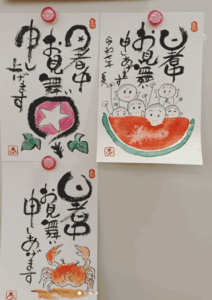 暑中
お見舞い
申し
上げます
暑中
お見舞い
申しあげます
暑中
お見舞い
申しあげます